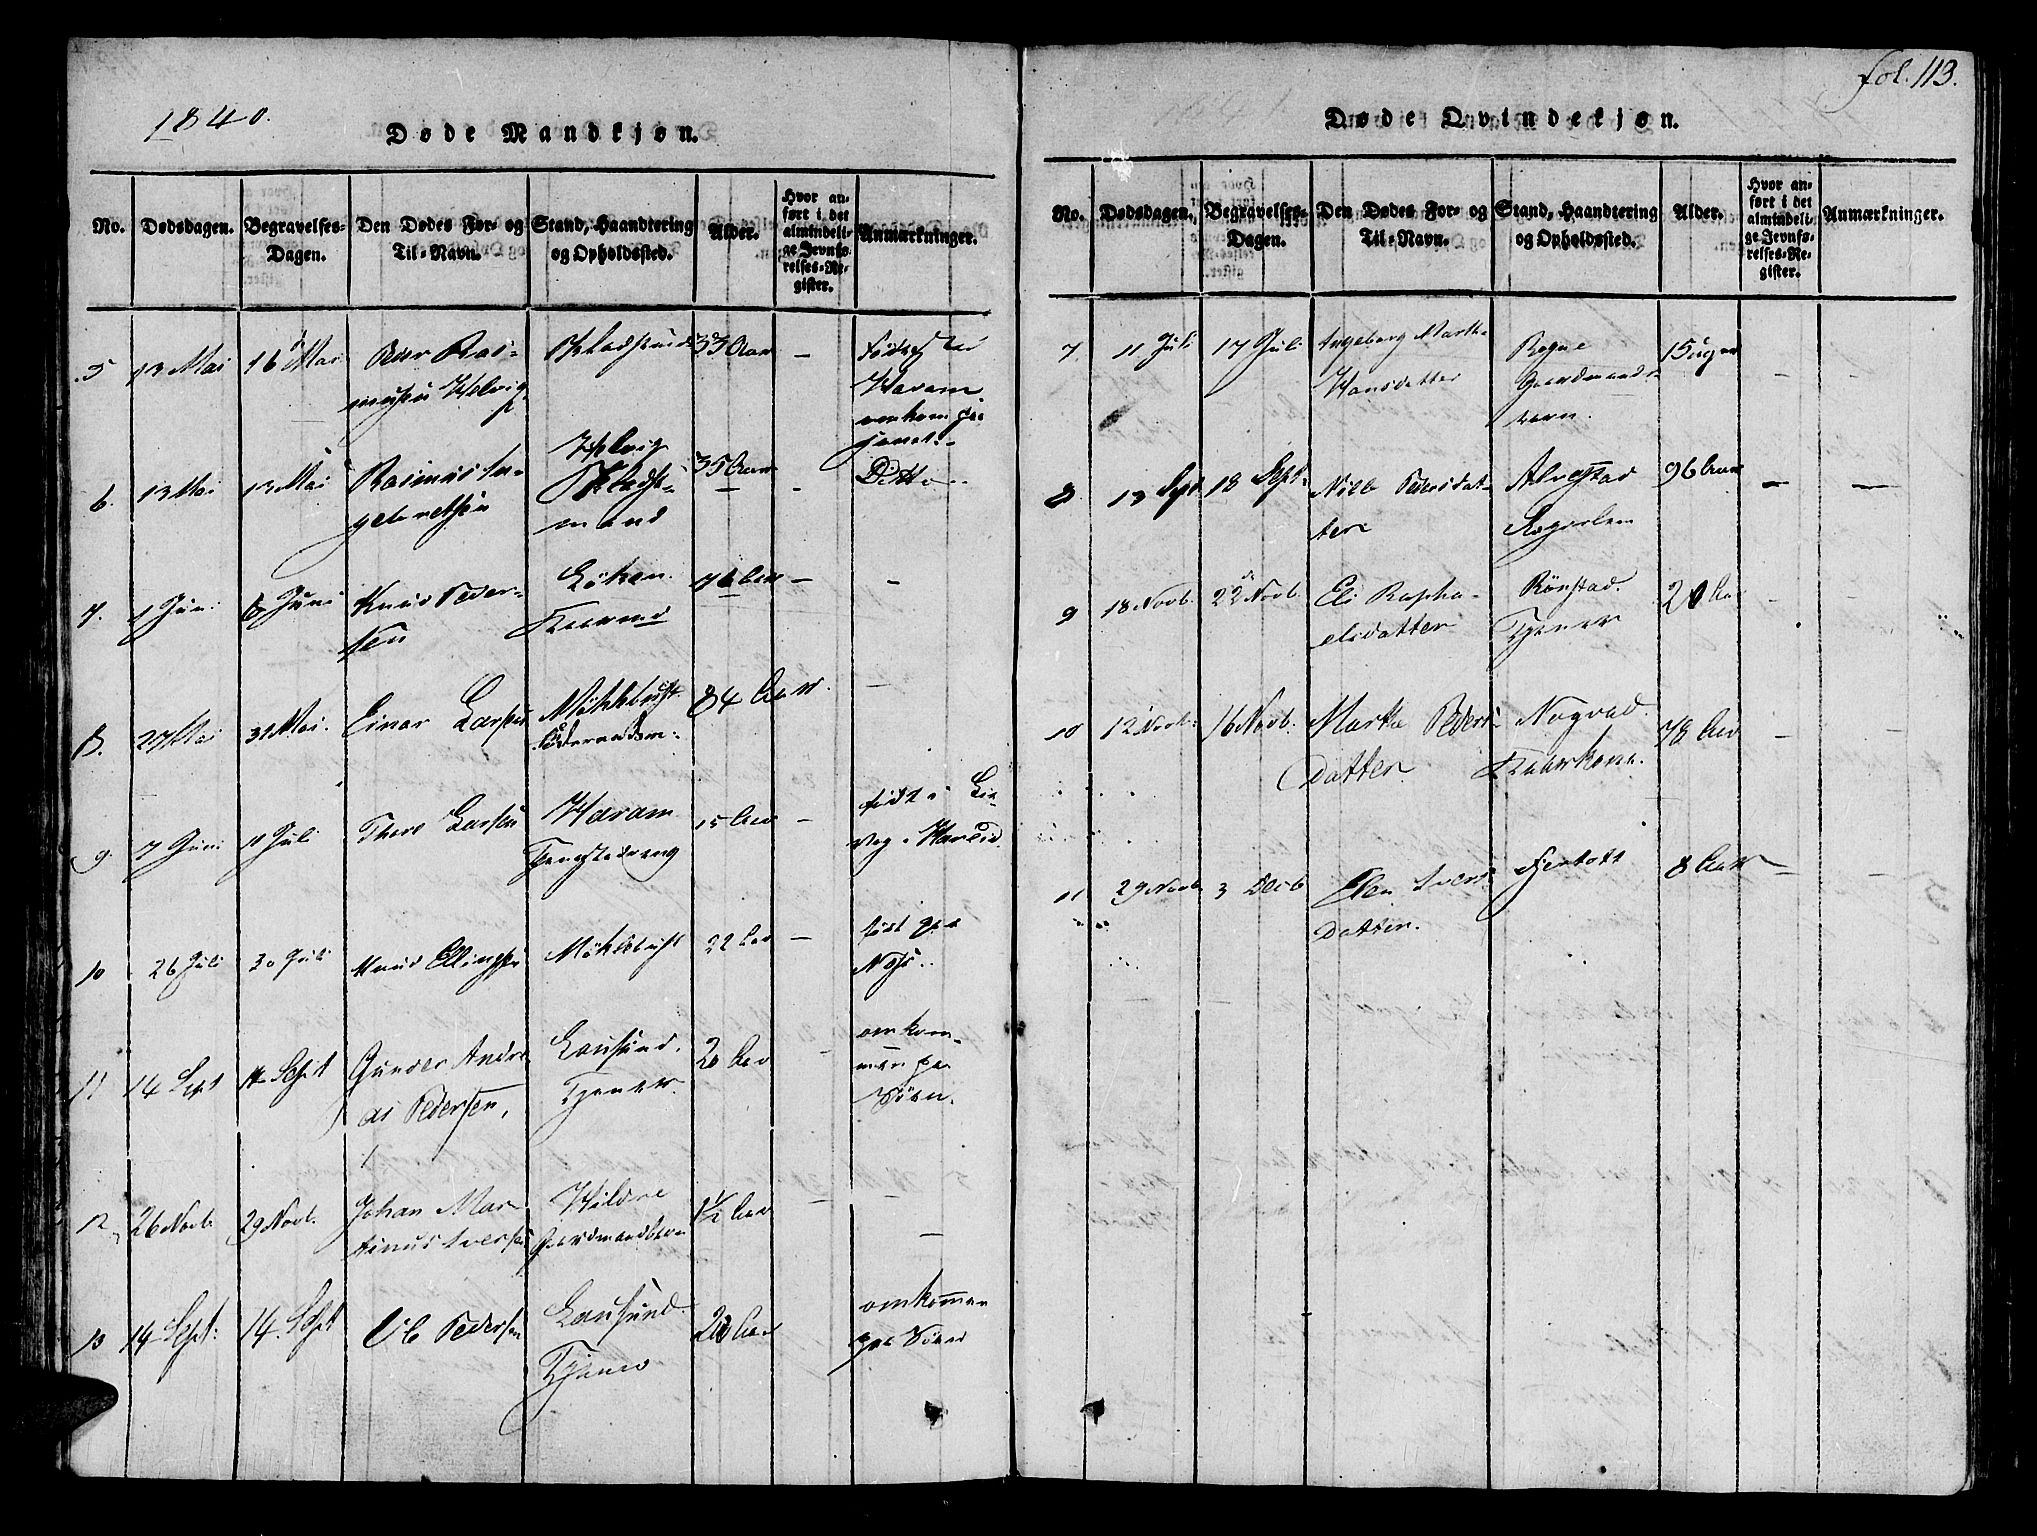 1840.
Døde Mandkjøn.
No.
Dødsdagen.
Begravelses-
Dagen.
Den Dødes For- og
Til-Navn.
Stand, Haandtering
og Opholdssted.
Alder.
Hvor an-
ført i det
almindeli-
ge Jevnfø-
relses-Re-
gister.
Anmærkninger.
5 13 Mai 16 Mai Peder Ras-
musen Helvig
33 Aar –
Haram
omkom paa
6. 13 Mai 13 Mai Rasmus In-
gebretsen
Helvig
mand
35 Aar – Ditto
7. 1 Juni 6 Juni Knud Peder-
sen
Löken
76 Aar – –
8. 27 Mai 31 Mai. Einar Larsen
Möklebust
Föderaadsm.
84 Aar. –
9. 7 Juni 11 Juli Thore Larsen
Haram
Tjenestedreng
15 Aar –
født i
Hareid
10 26 Juli 30 Juli Knud Ellingsen
Möklebust
22 Aar –
født paa
11 14 Sept 14 Sept Gunder Andre
as Pedersen,
Longsund.
Tjener.
20 Aar –
omkom-
men paa
Söen.
12. 26 Novb. 29 Novb. Johan Mar
tinus Iversen
Hildre
Gaardmandsbarn
1½ Aar –
13 14 Sept: 14. Sept Ole Pedersen
Longsund.
Tjener
20 Aar
omkommen
paa Söen
fol. 113.
Døde Qvindekjøn.
No.
Dødsdagen.
Begravelses-
Dagen.
Den Dødes For- og
Til-Navn.
Stand, Haandtering
og Opholdssted.
Alder.
Hvor an-
ført i det
almindeli-
ge Jevnfø-
relses-Re-
gister.
Anmærkninger.
7. 11 Juli 17 Juli Ingeborg Marthe
Hansdatter
Rogne
Gaardmands-
barn.
15 uger – –
8 13 Sept. 18 Sept. Pedersdat-
ter
Alvestad
96 Aar – –
9 18 Novb. 22 Novb. Eli Rapha-
elsdatter
Rönstad.
Tjener
20 Aar –
10 12 Novb. 16 Novb. Martha Peders-
datter
Nogvad.
78 Aar –
11 29 Novb. 3 Decb Elen Ivers
datter.
Fjertoft
8 Aar – –